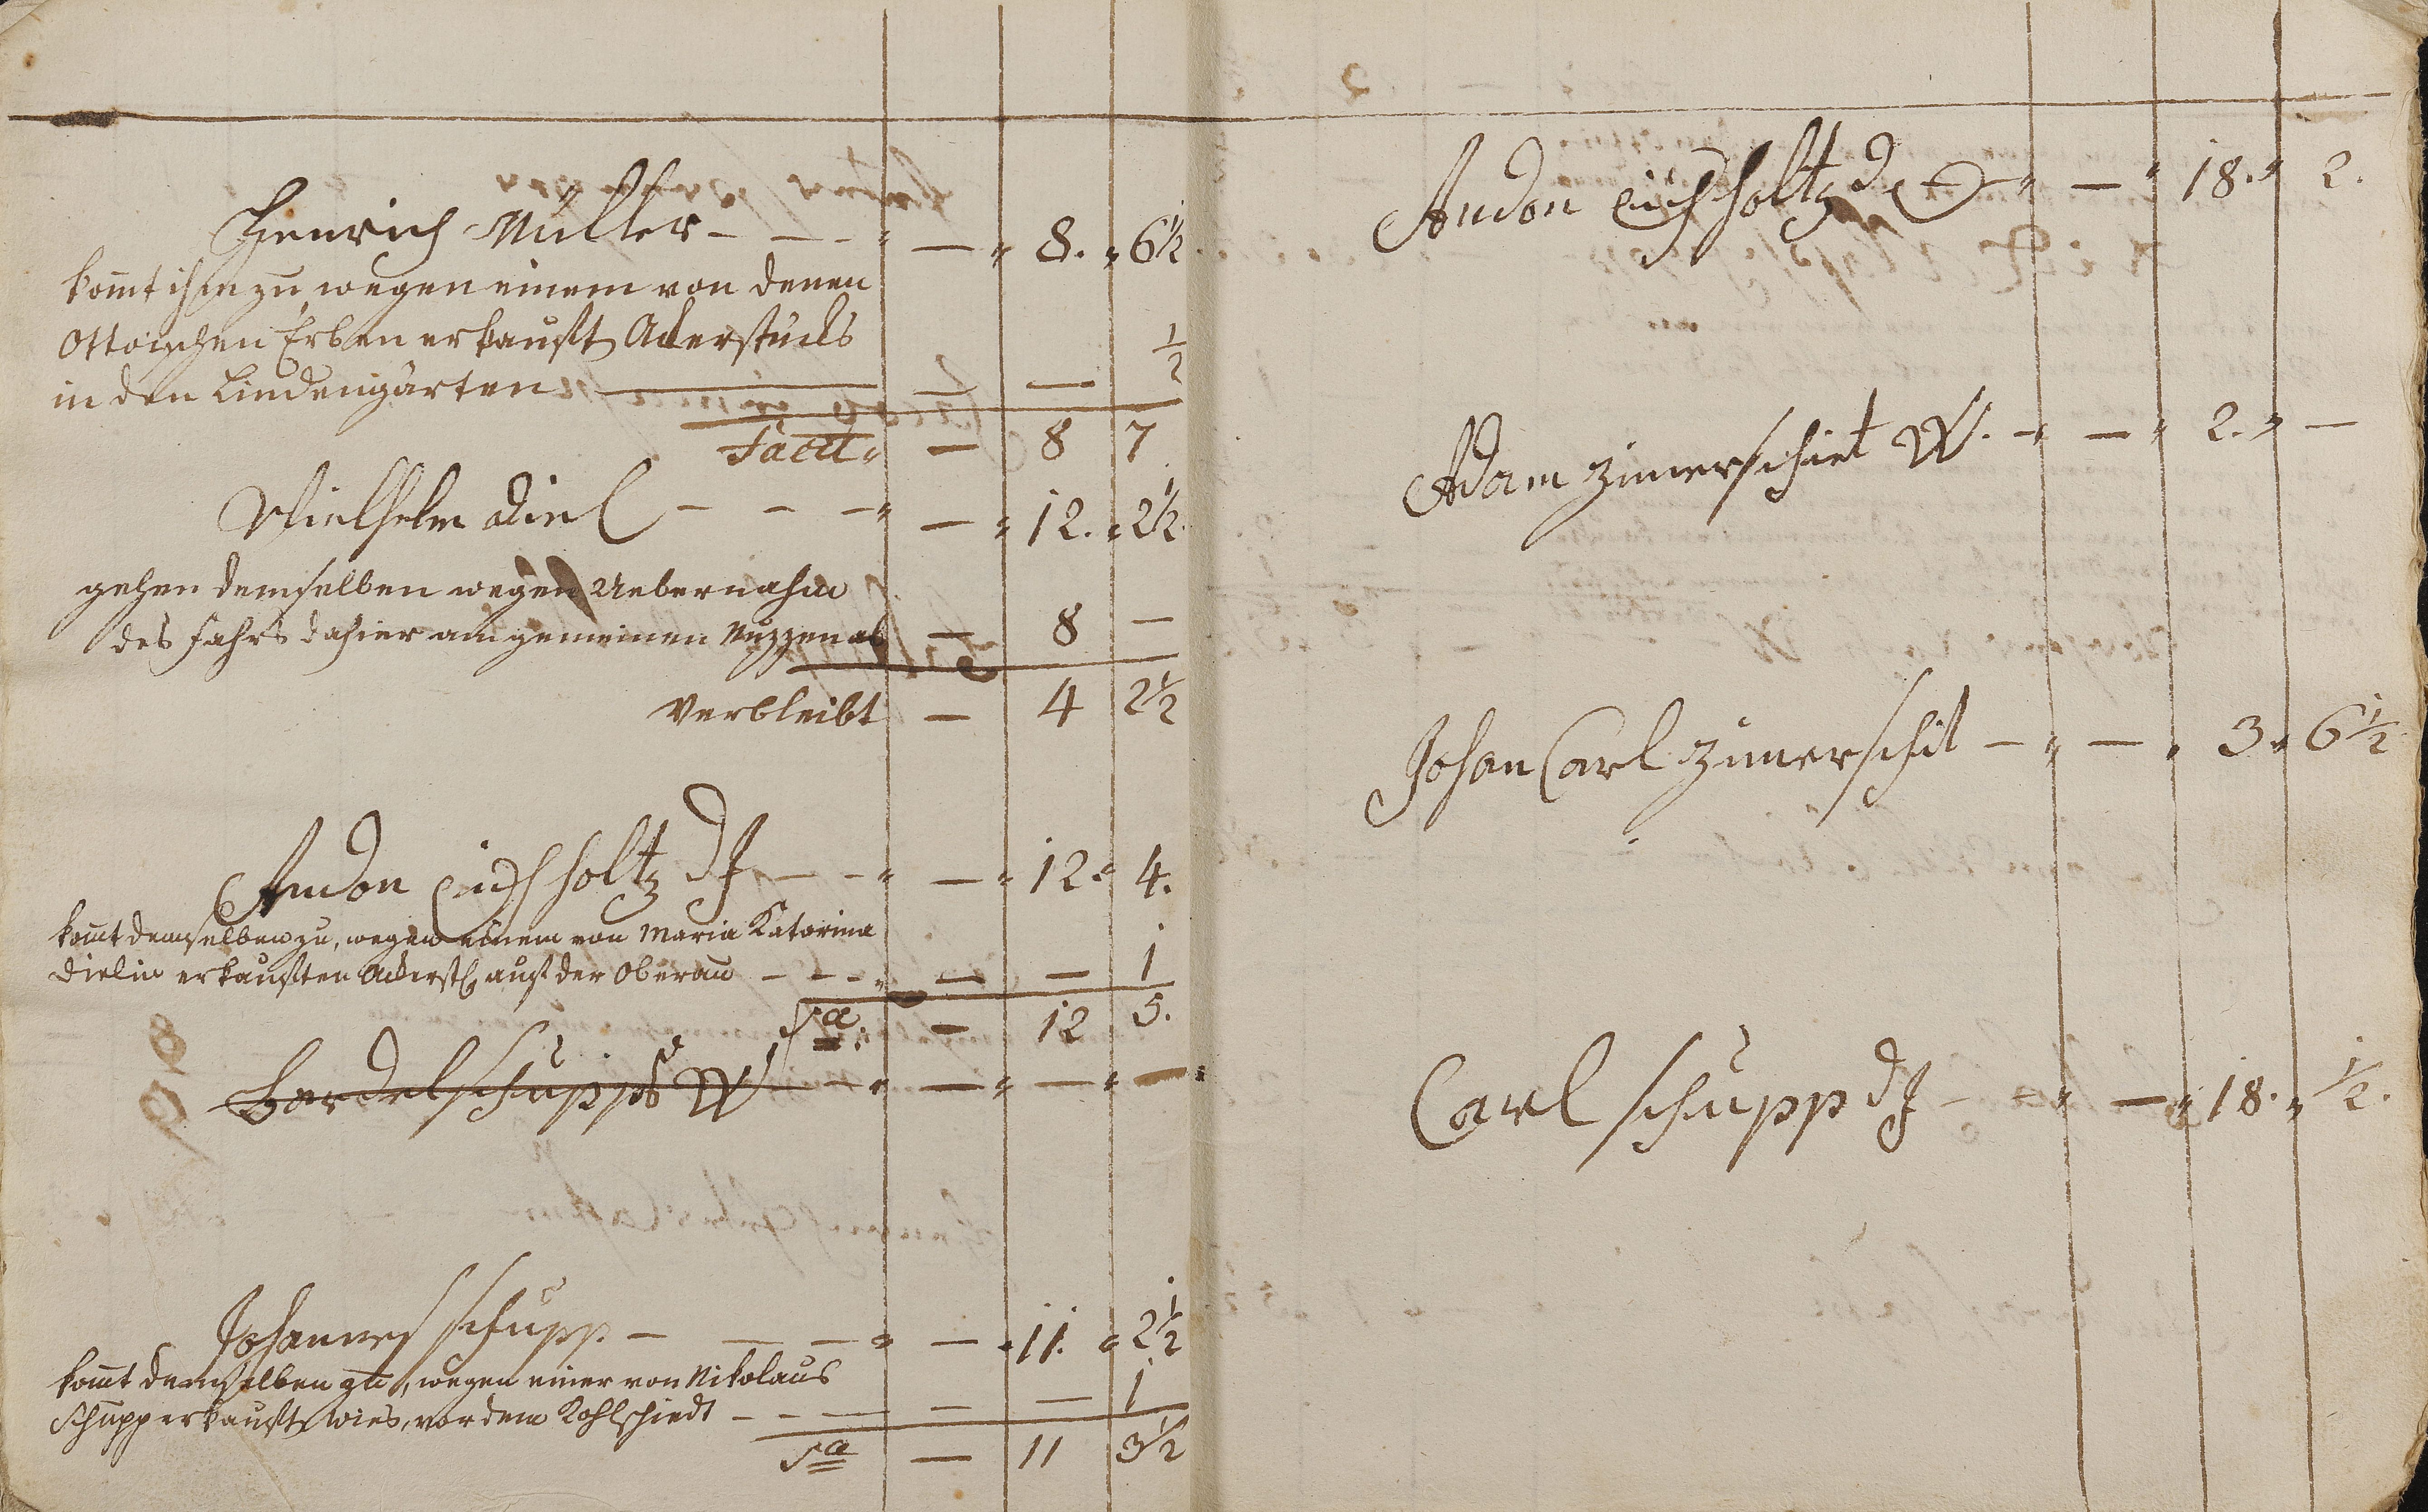 Henrich Müller - - - " — " 8. " 6½
komt ihm zu, wegen einem von denen
Ottoischen Erben erkauft Ackerstücks
in den Lindengärten — — — ½
Facit " — 8 7
Wielhelm diel - - - " — " 12. " 2½.
gehen demselben wegen Uebernahm
des Fahrs dahier am gemeinen Nuzzen ab — 8 —
Verbleibt — 4 2½
Andon Eichholtz dJ - - " — " 12. " 4.
komt demselben zu, wegen einem von Maria Katarina
Dielin erkauften Ackerst auf der Oberau - - - " — — 1
Sa. — 12 5.
Bardel schupps W — " — " — " — "
Johannes schupp - — — " — " 11. " 2½
komt demselben zu, wegen einer von Nikolaus
Schupp erkauft wies, vor dem Kohlschiedt - - — — — 1
Sa — 11 3½
Andon Eichholtz d " — " 18. " 2.
Adam zimerschiet W. - " — " 2. " —
Johan Carl zimerschit — " — " 3 " 6½
Carl schupp dJ - - " — " 18. " ½.